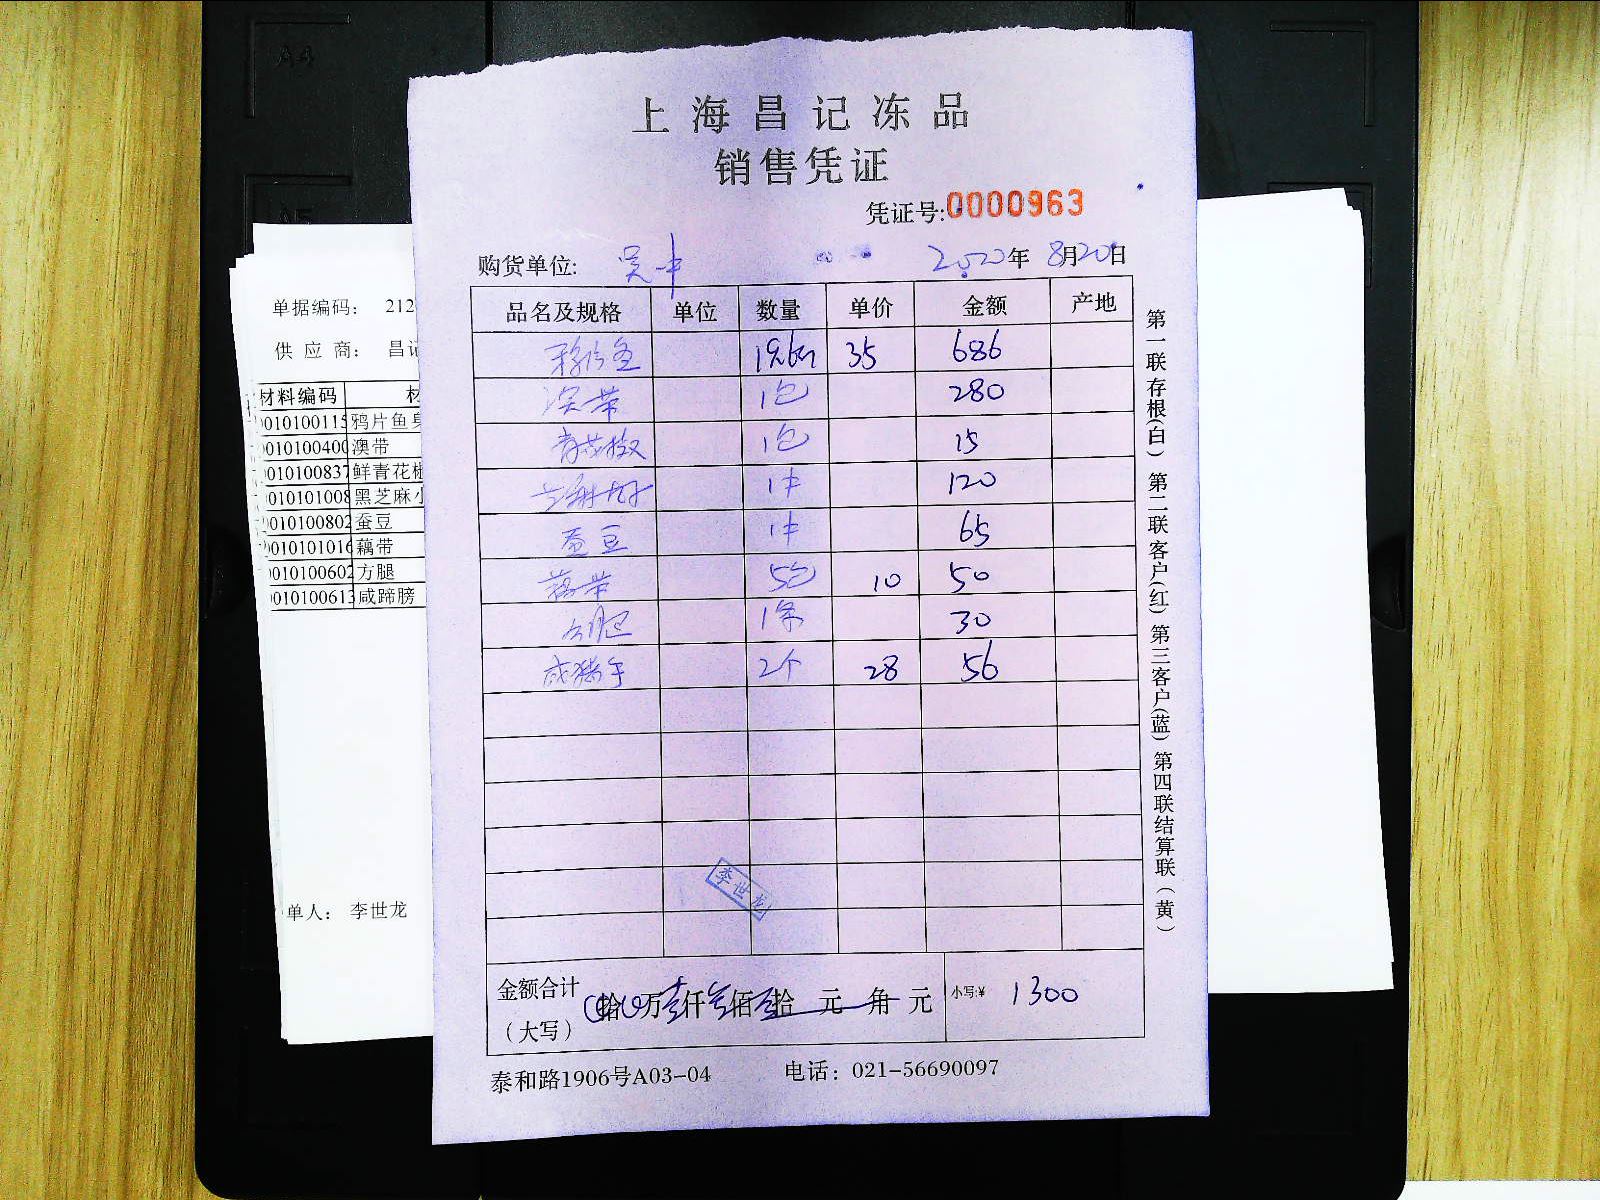 上海昌记冻品
销售凭证
凭证号:0000963
购货单位: 吴中 2020年 8月20日
品名及规格 单位 数量 单价 金额 产地
19.6斤 35 686
澳带 1包 280
青花椒 1包 15
1件 120
蚕豆 1件 65
藕带 5包 10 50
方腿 1条 30
咸猪手 2个 28 56
李世龙
金额合计 拾 万 仟 佰 拾 元 角 元 小写:¥ 1300
(大写)
泰和路1906号A03-04 电话: 021-56690097
第一联存根(白) 第二联客户(红) 第三客户(蓝) 第四联结算联(黄)
单据编码: 212
供应商: 昌记
材料编码 材
0010100115 鸦片鱼身
0010100400 澳带
0010100837 鲜青花椒
0010101008 黑芝麻小
0010100802 蚕豆
0010101016 藕带
0010100602 方腿
0010100613 咸蹄膀
单人: 李世龙
A4
A5